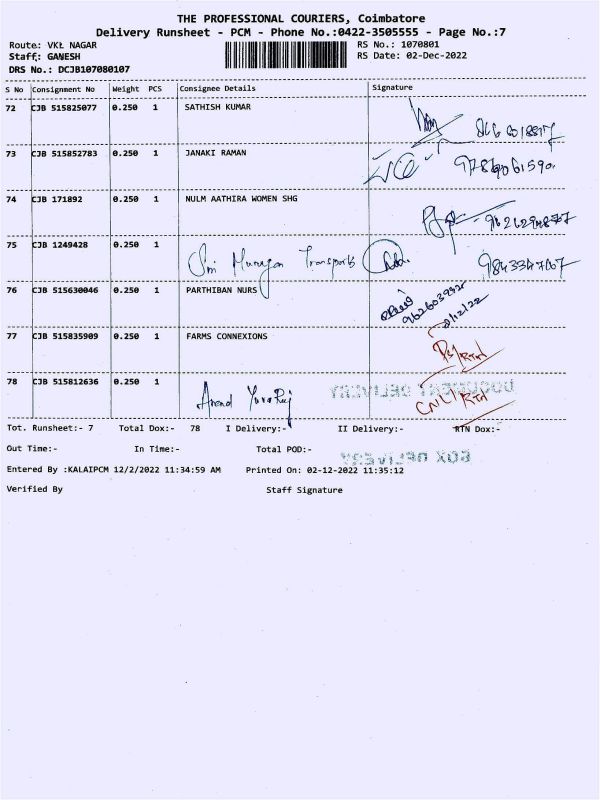 THE PROFESSIONAL COURIERS, Coimbatore
Delivery Runsheet - PCM - Phone No.:0422-3505555 - Page No.:7
Route: VKL NAGAR RS No.: 1070801
Staff: GANESH RS Date: 02-Dec-2022
DRS No.: DCJB107080107
S No Consignment No Weight PCS Consignee Details Signature
72 CJB 515825077 0.250 1 SATHISH KUMAR
73 CJB 515852783 0.250 1 JANAKI RAMAN
74 CJB 171892 0.250 1 NULM AATHIRA WOMEN SHG
75 CJB 1249428 0.250 1 Sri Murugan Transports
76 CJB 515630046 0.250 1 PARTHIBAN NURS 9626039928
2/12/22
77 CJB 515835909 0.250 1 FARMS CONNEXIONS
DOCUMENT DELIVERY
78 CJB 515812636 0.250 1 Anand Yuvaraj CNL/RTN
Tot. Runsheet:- 7 Total Dox:- 78 I Delivery:- II Delivery:- RTN Dox:-
Out Time:- In Time:- Total POD:-
BOX DELIVERY
Entered By :KALAIPCM 12/2/2022 11:34:59 AM Printed On: 02-12-2022 11:35:12
Verified By Staff Signature